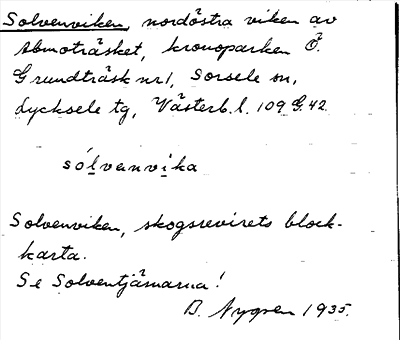 Solvenviken, nordöstra viken av
Abmoträsket, kronoparken Ö.
Grundträsk nr1, Sorsele sn,
Lycksele tg, Västerb.l. 109 G.42
sólvanvika
Solvenviken, skogsrevirets block-
karta.
Se Solventjärnarna!
B. Nygren 1935.